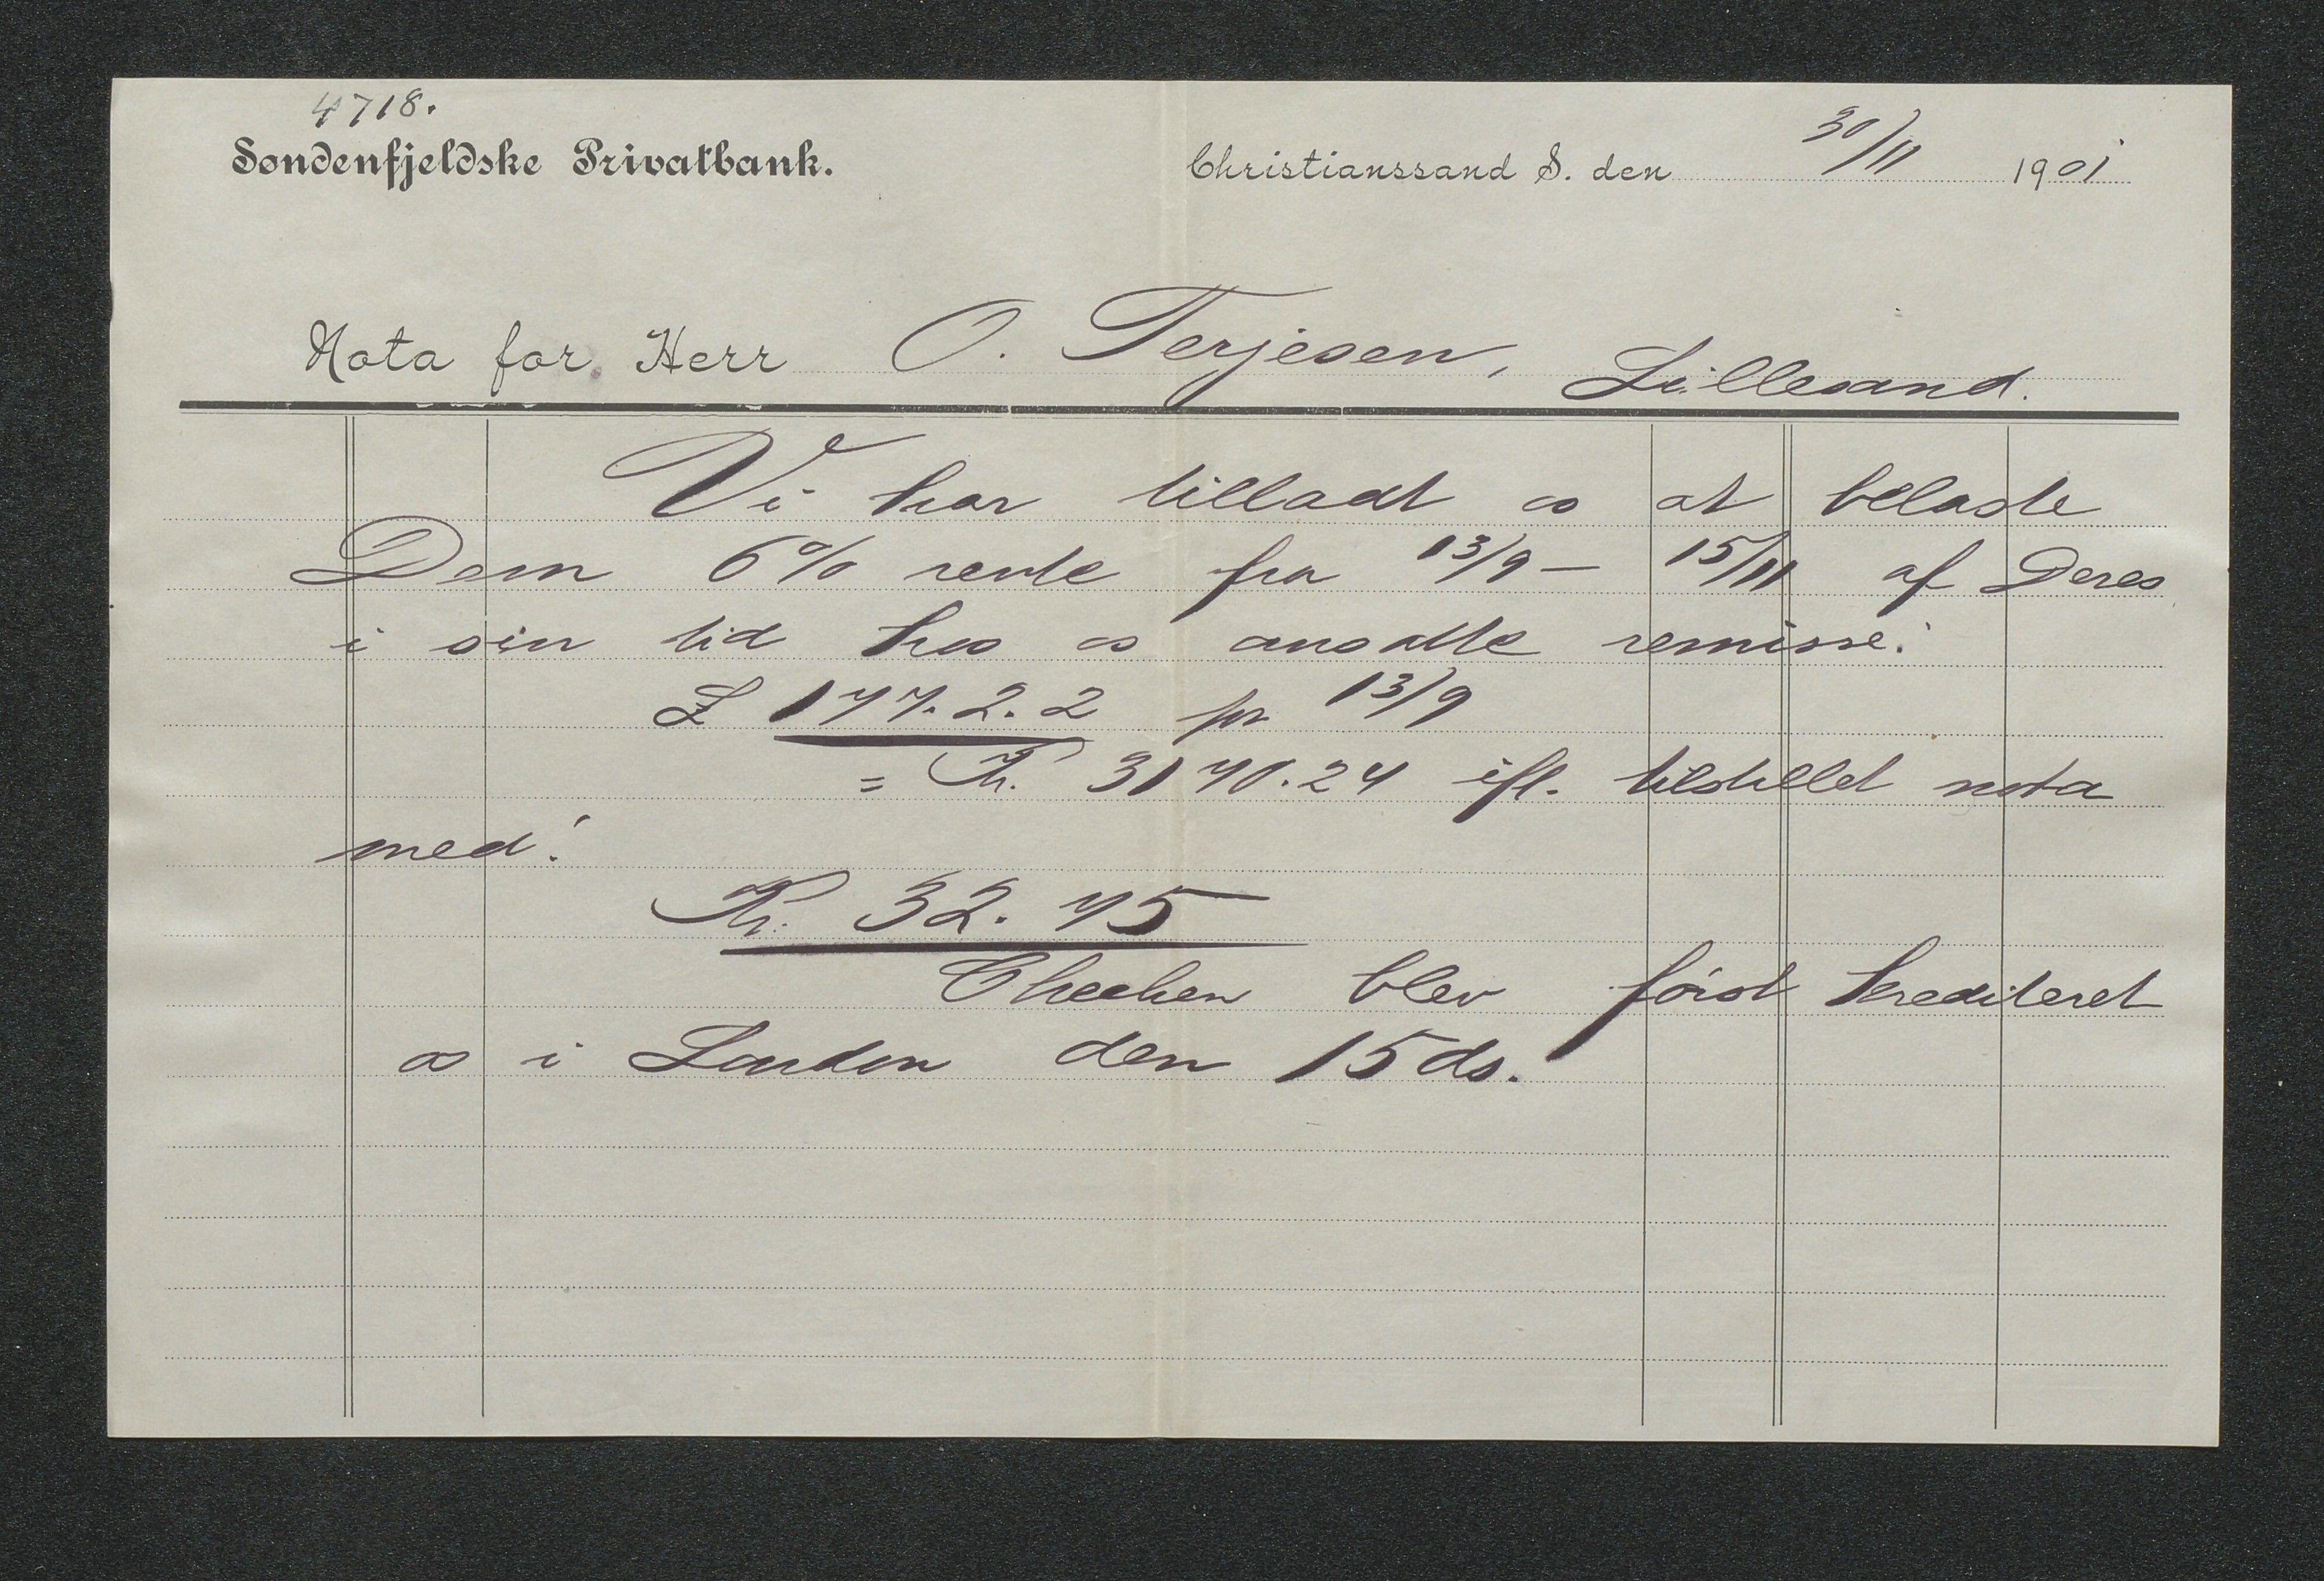 4718.
Søndenfjeldske Privatbank.
Christianssand S. den 30/11 1901
Nota for Herr O. Terjesen, Lillesand.
Vi har tilladt os at belaste
Dem 6% rente fra 13/9 – 15/11 af Deres
i sin tid hos os ansatte remisse:
£ 177.2.2 pr 13/9
= Kr. 3170.24 ifl. tilstillet nota
med:
Kr. 32.75
Checken blev først krediteret
os i London den 15 ds.